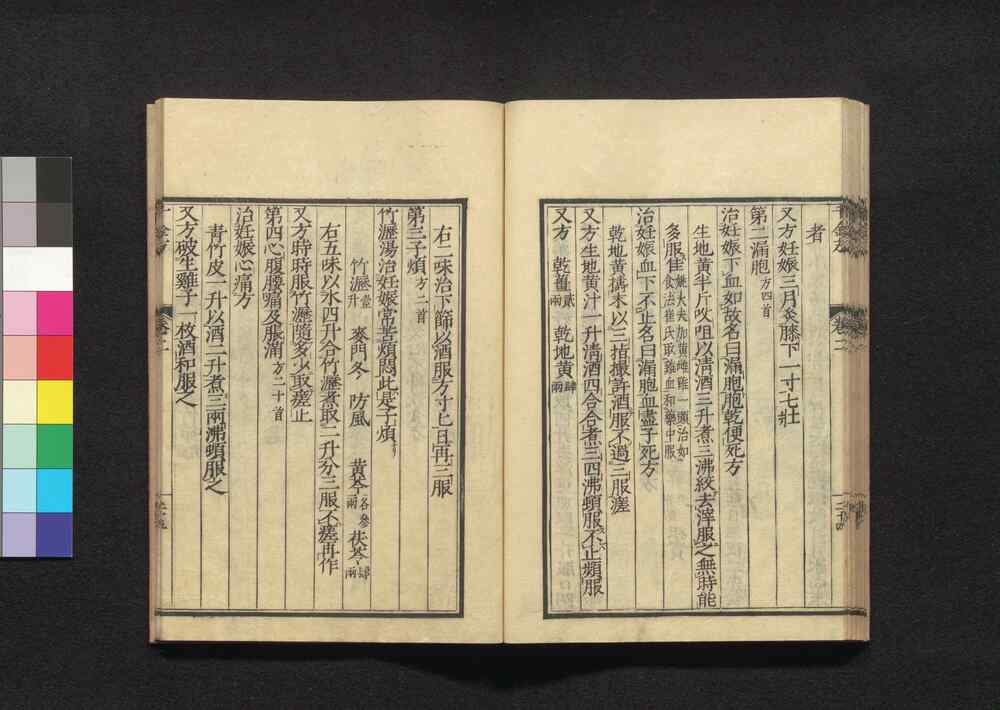 者
又方妊娠三月灸膝下一寸七壯
第二漏胞方四首
治妊娠下血如故名曰漏胞胞乾便死方
生地黄半斤㕮咀以清酒三升煮三沸絞去滓服之無時能
多服佳姚大夫加黄雌雞一頭治如食法崔氏取雞血和藥中服
治妊娠血下不止名曰漏胞血盡子死方
乾地黄擣末以三指撮許酒服不過三服差
又方生地黄汁一升清酒四合合煮三四沸頓服之不止頻服
又方 乾薑貳兩 乾地黄肆兩
右二味治下篩以酒服方寸匕日再三服
第三子煩方二首
竹瀝湯治妊娠常苦煩悶此是子煩方
竹瀝壹升 麥門冬 防風 黄芩各參兩 茯苓肆兩
右五味以水四升合竹瀝煮取二升分三服不瘥再作
又方時時服竹瀝隨多少取瘥止
第四心腹腰痛及脹滿方二十首
治妊娠心痛方
青竹皮一升以酒二升煮三兩沸頓服之
又方破生雞子一枚酒和服之
千金方 卷二